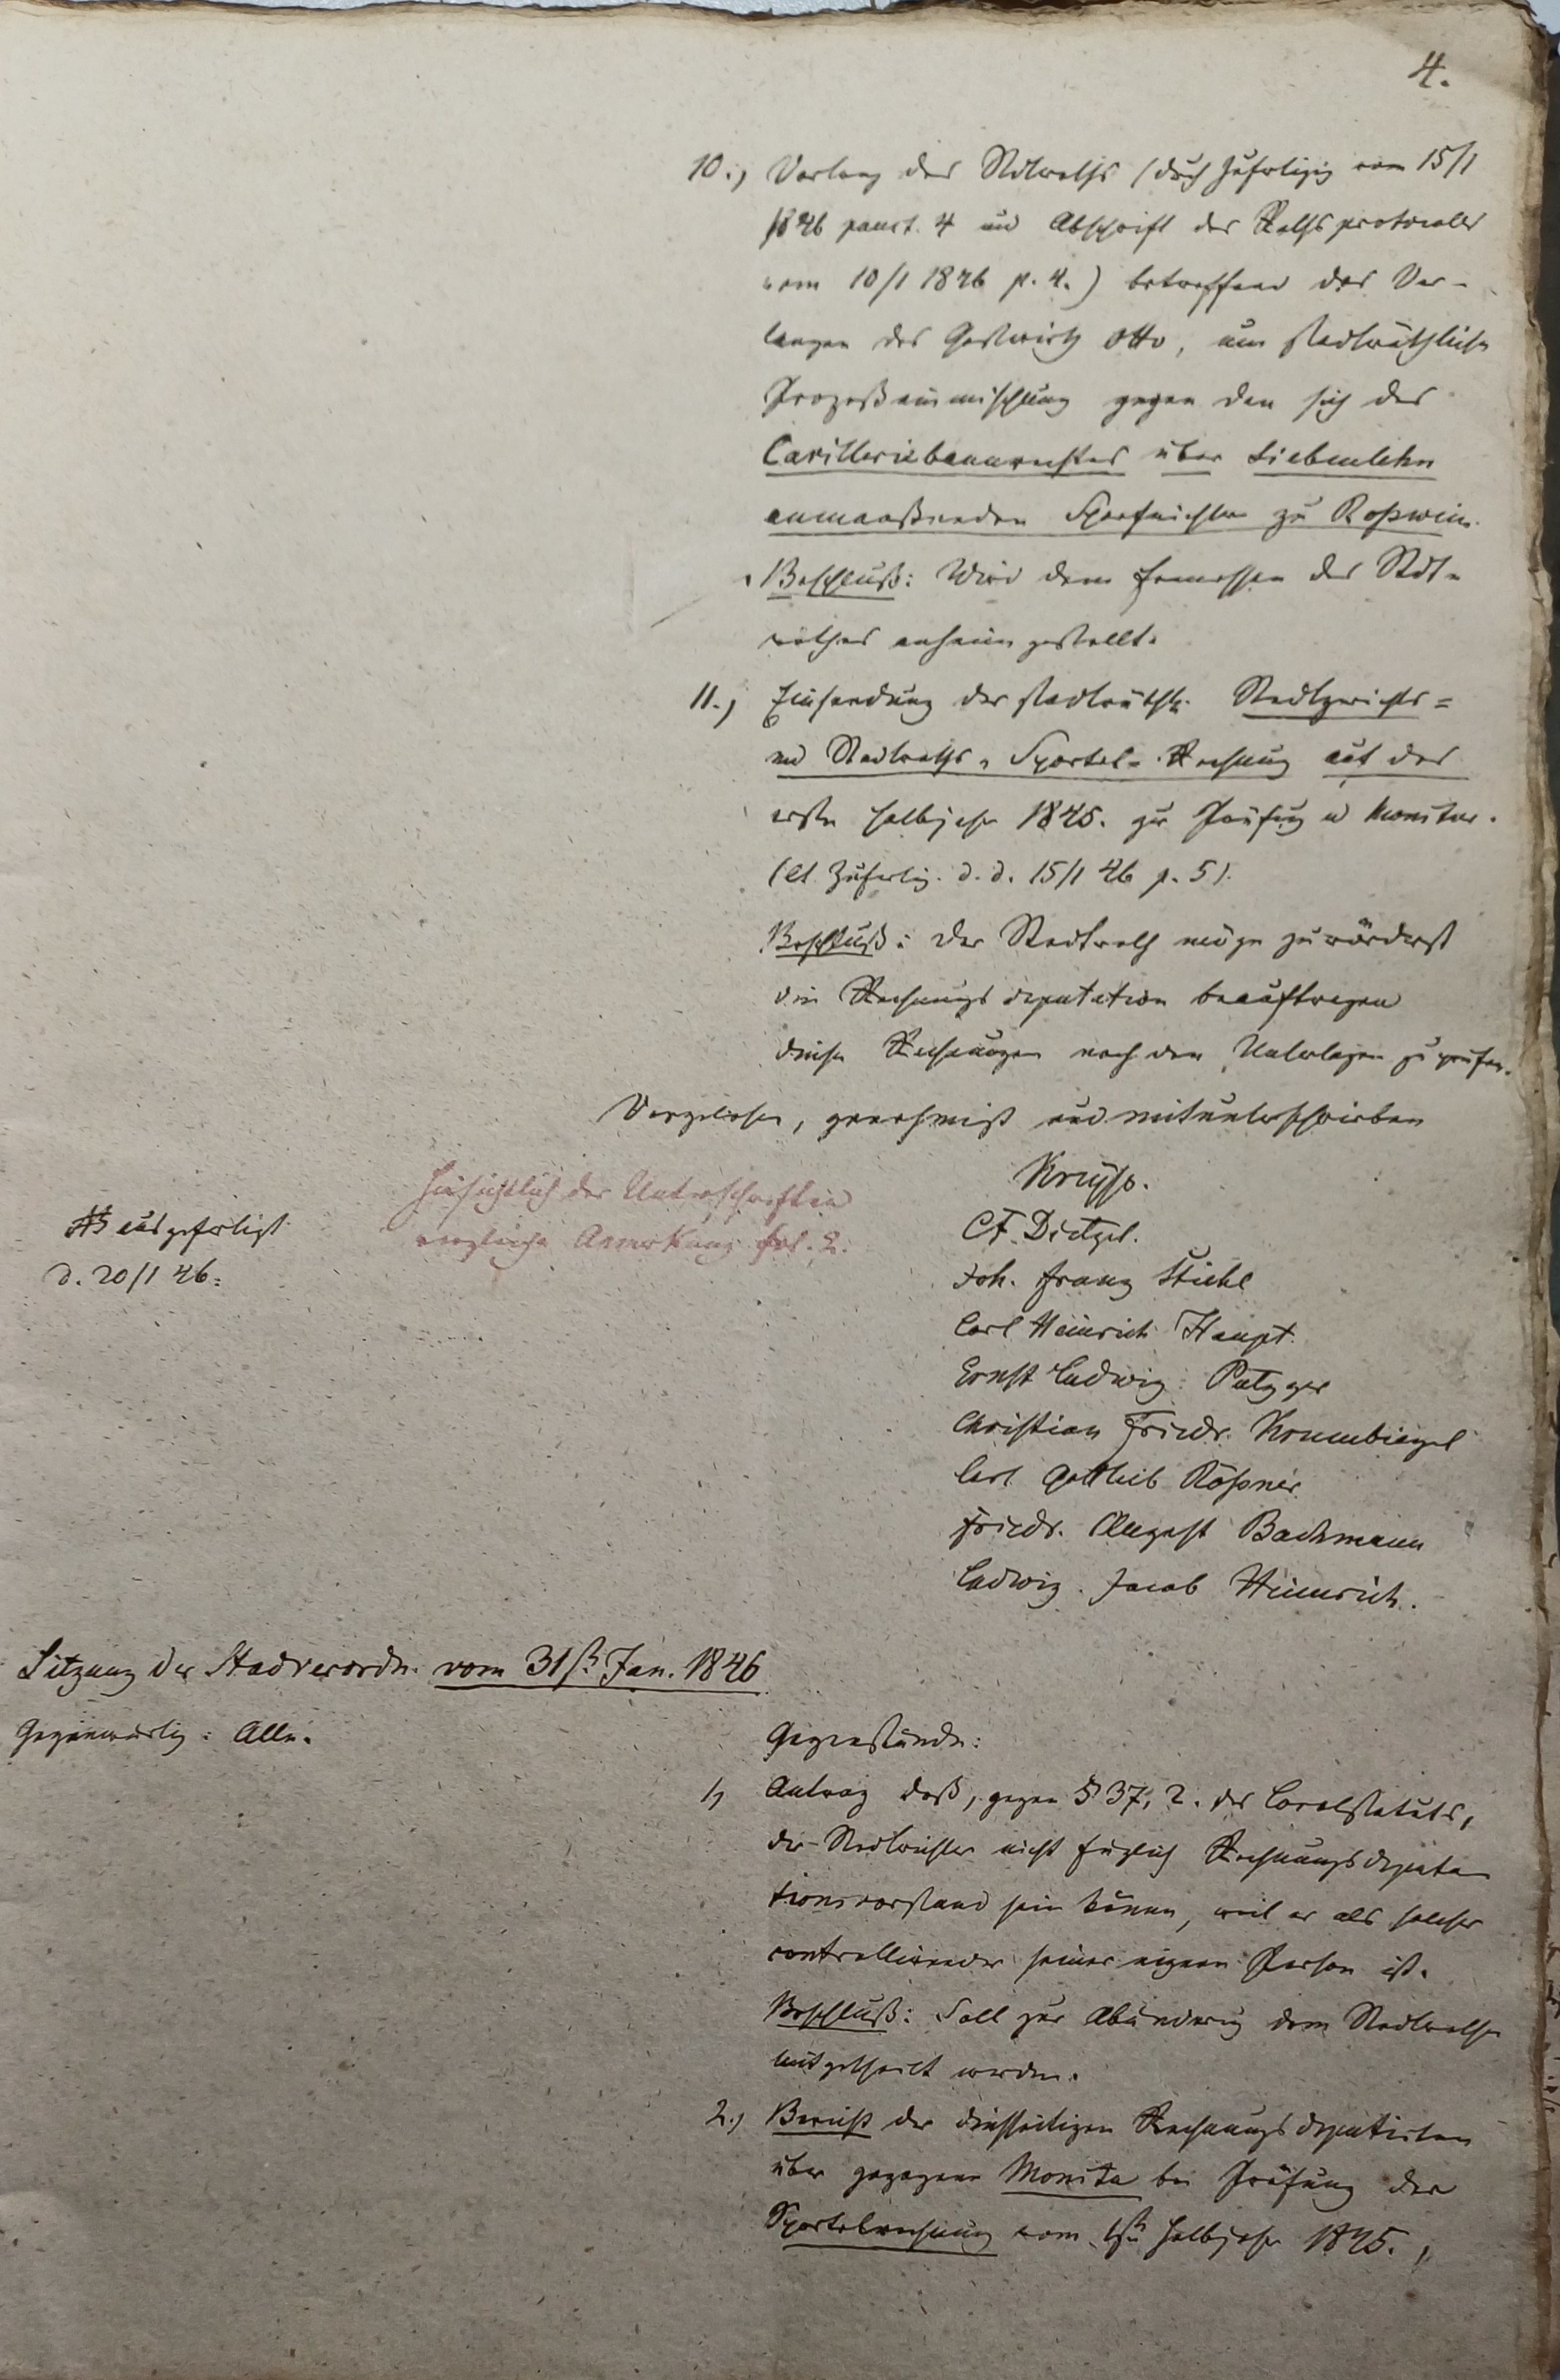 4.
10.) Vortrag des Stdtraths (durch Zufertigig vom 15/1
1846 punct. 4 und Abschrift des Rathsprotocolls
vom 10/1 1846 p. 4.) betreffend das Ver-
langen des Gastwirth Otto, um stadträthliche
Prozeßeinmischung gegen den sich des
Cavillereibannrechtes über Siebenlehn
anmaaßenden Scharfrichter zu Roßwein.
Beschluß: Wird dem Ermessen des Stdt-
rathes anheim gestellt.
11.) Einsendung der stadträthl. Stadtgerichts=
und Stadtraths-Sportel-Rechnung auf das
erste Halbjahr 1845. zur Prüfung u Monitur.
(lt. Zufertig. d. d. 15/1 46 p. 5).
Beschluß: Der Stadtrath möge zuvörderst
die Rechnungsdeputation beauftragen
diese Rechnungen nach den Unterlagen zu prüfen.
Vorgelesen, genehmigt und mitunterschrieben
Hinsichtlich der Unterschriften
vergleiche Anmerkung fol. 2.
ausgefertigt
d. 20/1 46.
C.F. Dietzel.
Joh. Franz Stiehl
Carl Heinrich Haupt.
Ernst Ludwig Patzger
Christian Friedr. Krumbiegel
Carl Gottlieb Rößner
Friedr. August Bachmann
Ludwig Jacob Heinrich.
Sitzung der Stadverordn. vom 31st. Jan. 1846
Gegenwärtig: Alle.
Gegenstände:
1, Antrag daß, gegen § 37, 2. des Localstatuts,
der Stadtrichter nicht füglich Rechnungsdeputa
tionsvorstand sein könne, weil er als solcher
controllirender seiner eignen Person ist.
Beschluß: Soll zur Abändrung dem Stadtrathe
mitgetheilt werden.
2.) Bericht der diesseitigen Rechnungsdeputirten
über gezogene Monita bei Prüfung der
Sportelrechnung vom 1ste Halbjahr 1845.,